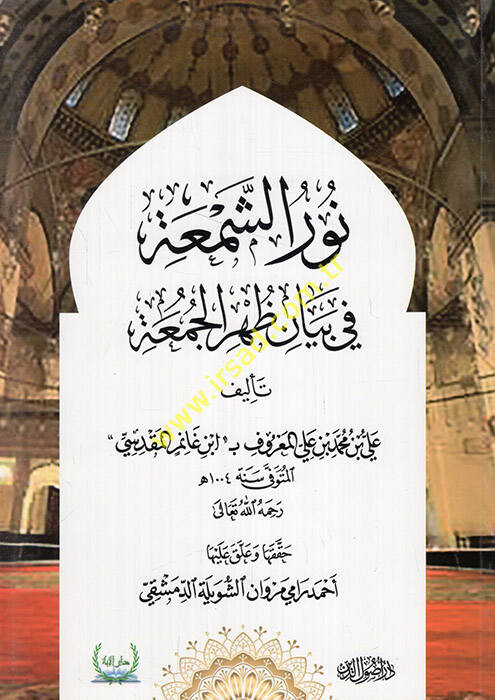 نُورُ الشَّمْعَةِ
فِي بَيَانِ ظُهْرِ الجُمُعَةِ
تأليف
عَلِيّ بْن مُحَمَّد بْن عَلِي المَعْرُوف بـ "ابْن غَانِم المَقْدِسِيّ"
المُتَوَفَّى سَنَة ١٠٠٤هـ
رَحِمَهُ اللهُ تَعَالَى
حَقَّقَهَا وَعَلَّقَ عَلَيْهَا
أحمد رامي مروان الشويلة الدمشقي
دار أصول الدين
www.irsad.com.tr